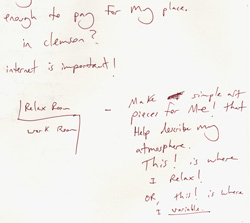 enough to pay for my place.
in clemson?
internet is important!
Relax Room
work Room
- Make simple art
pieces for Me! that
Help describe my
atmosphere.
This! is where
I Relax!
OR, this! is where
I variable